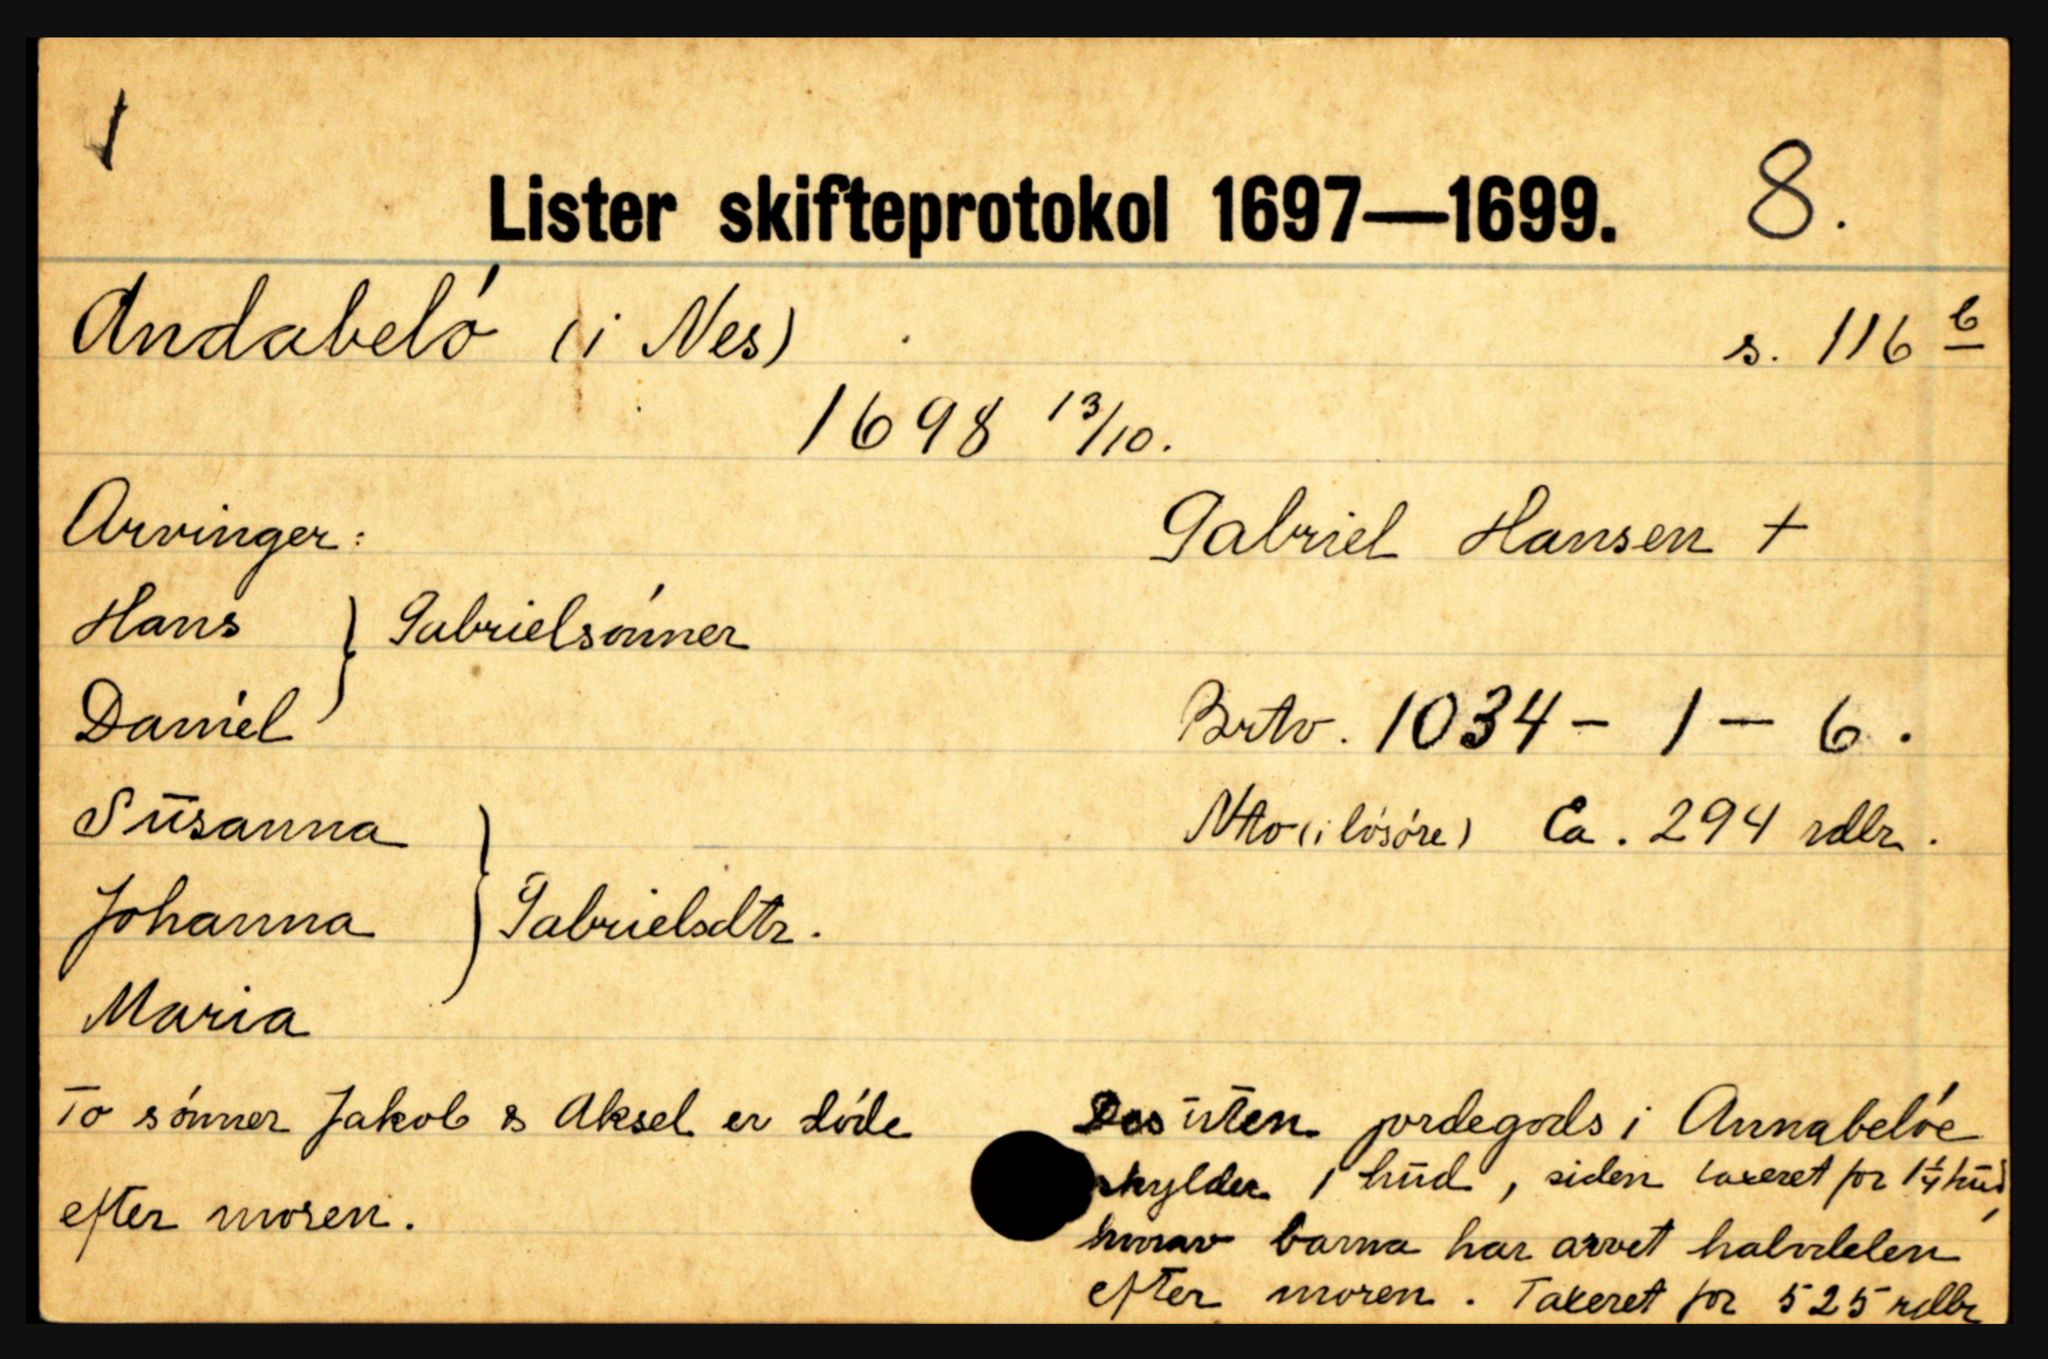 Lister skifteprotokol 1697—1699. 8.
Andabeló (i Nes) s. 116 b
1698 13/10.
Arvinger: Gabriel Hansen +
Hans } Gabrielsónner
Daniel Brtv. 1034 - 1 - 6.
Sūsanna Ntto (i lósóre) Ca. 294 rdlr.
Johanna } Gabrielsdtr.
Maria
To sónner Jakob & Aksel er dóde
efter moren.
Desūten jordegods i Annabelóe
skylder 1 hūd, siden taxeret for 1 1/4 hūd,
hvorav barna har arvet halvdelen
efter moren. Taxeret for 525 rdlr